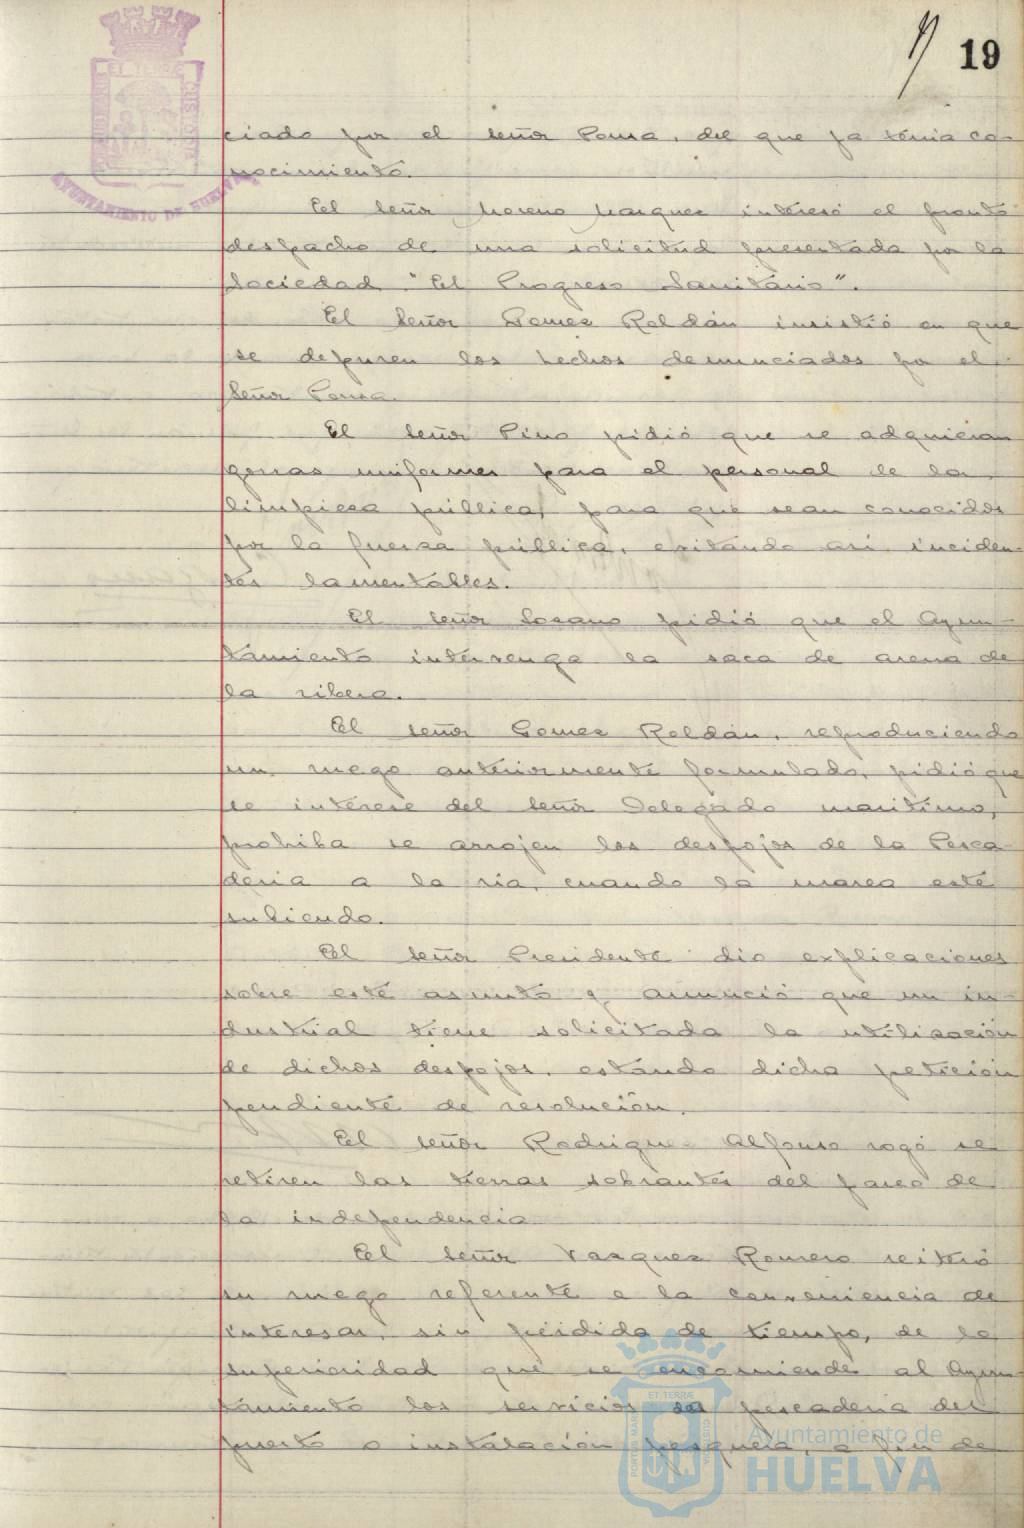 19
ciado por el señor Ponsa, del que ya tenia co-
nocimiento.
El señor Moreno Marquez interesó el pronto
despacho de una solicitud presentada por la
Sociedad "El Progreso Sanitario".
El Señor Gomez Roldán insistió en que
se depuren los hechos denunciados por el
Señor Ponsa.
El señor Pino pidió que se adquieran
gorras uniformes para el personal de la
limpieza pública, para que sean conocidos
por la fuerza pública, evitando asi inciden-
tes lamentables.
El señor Lozano pidió que el Ayun-
tamiento intervenga la saca de arena de
la ribera.
El señor Gomez Roldán, reproduciendo
un ruego anteriormente formulado, pidió que
se interese del señor Delegado maritimo,
prohiba se arrojen los despojos de la Pesca-
deria a la ria, cuando la marea esté
subiendo.
El señor Presidente dio explicaciones
sobre este asunto y anunció que un in-
dustrial tiene solicitada la utilizacion
de dichos despojos, estando dicha peticion
pendiente de resolución.
El señor Rodriguez Alfonso rogó se
retiren las tierras sobrantes del paseo de
la independencia
El señor Vazquez Romero reiteró
su ruego referente a la conveniencia de
interesar, sin pérdida de tiempo, de la
superioridad que se encomiende al Ayun-
tamiento los servicios de pescaderia del
puerto o instalación pesquera, a fin de
AYUNTAMIENTO DE HUELVA
Ayuntamiento de
HUELVA